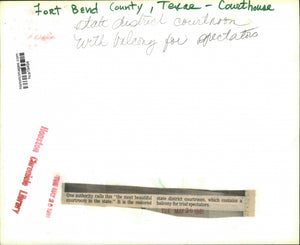 Fort Bend County, Texas - Courthouse
state district courtroom
with balcony for spectators
Houston Chronicle Library
One authority calls this "the most beautiful
courtroom in the state." It is the restored
state district courtroom, which contains a
balcony for trial spectators.